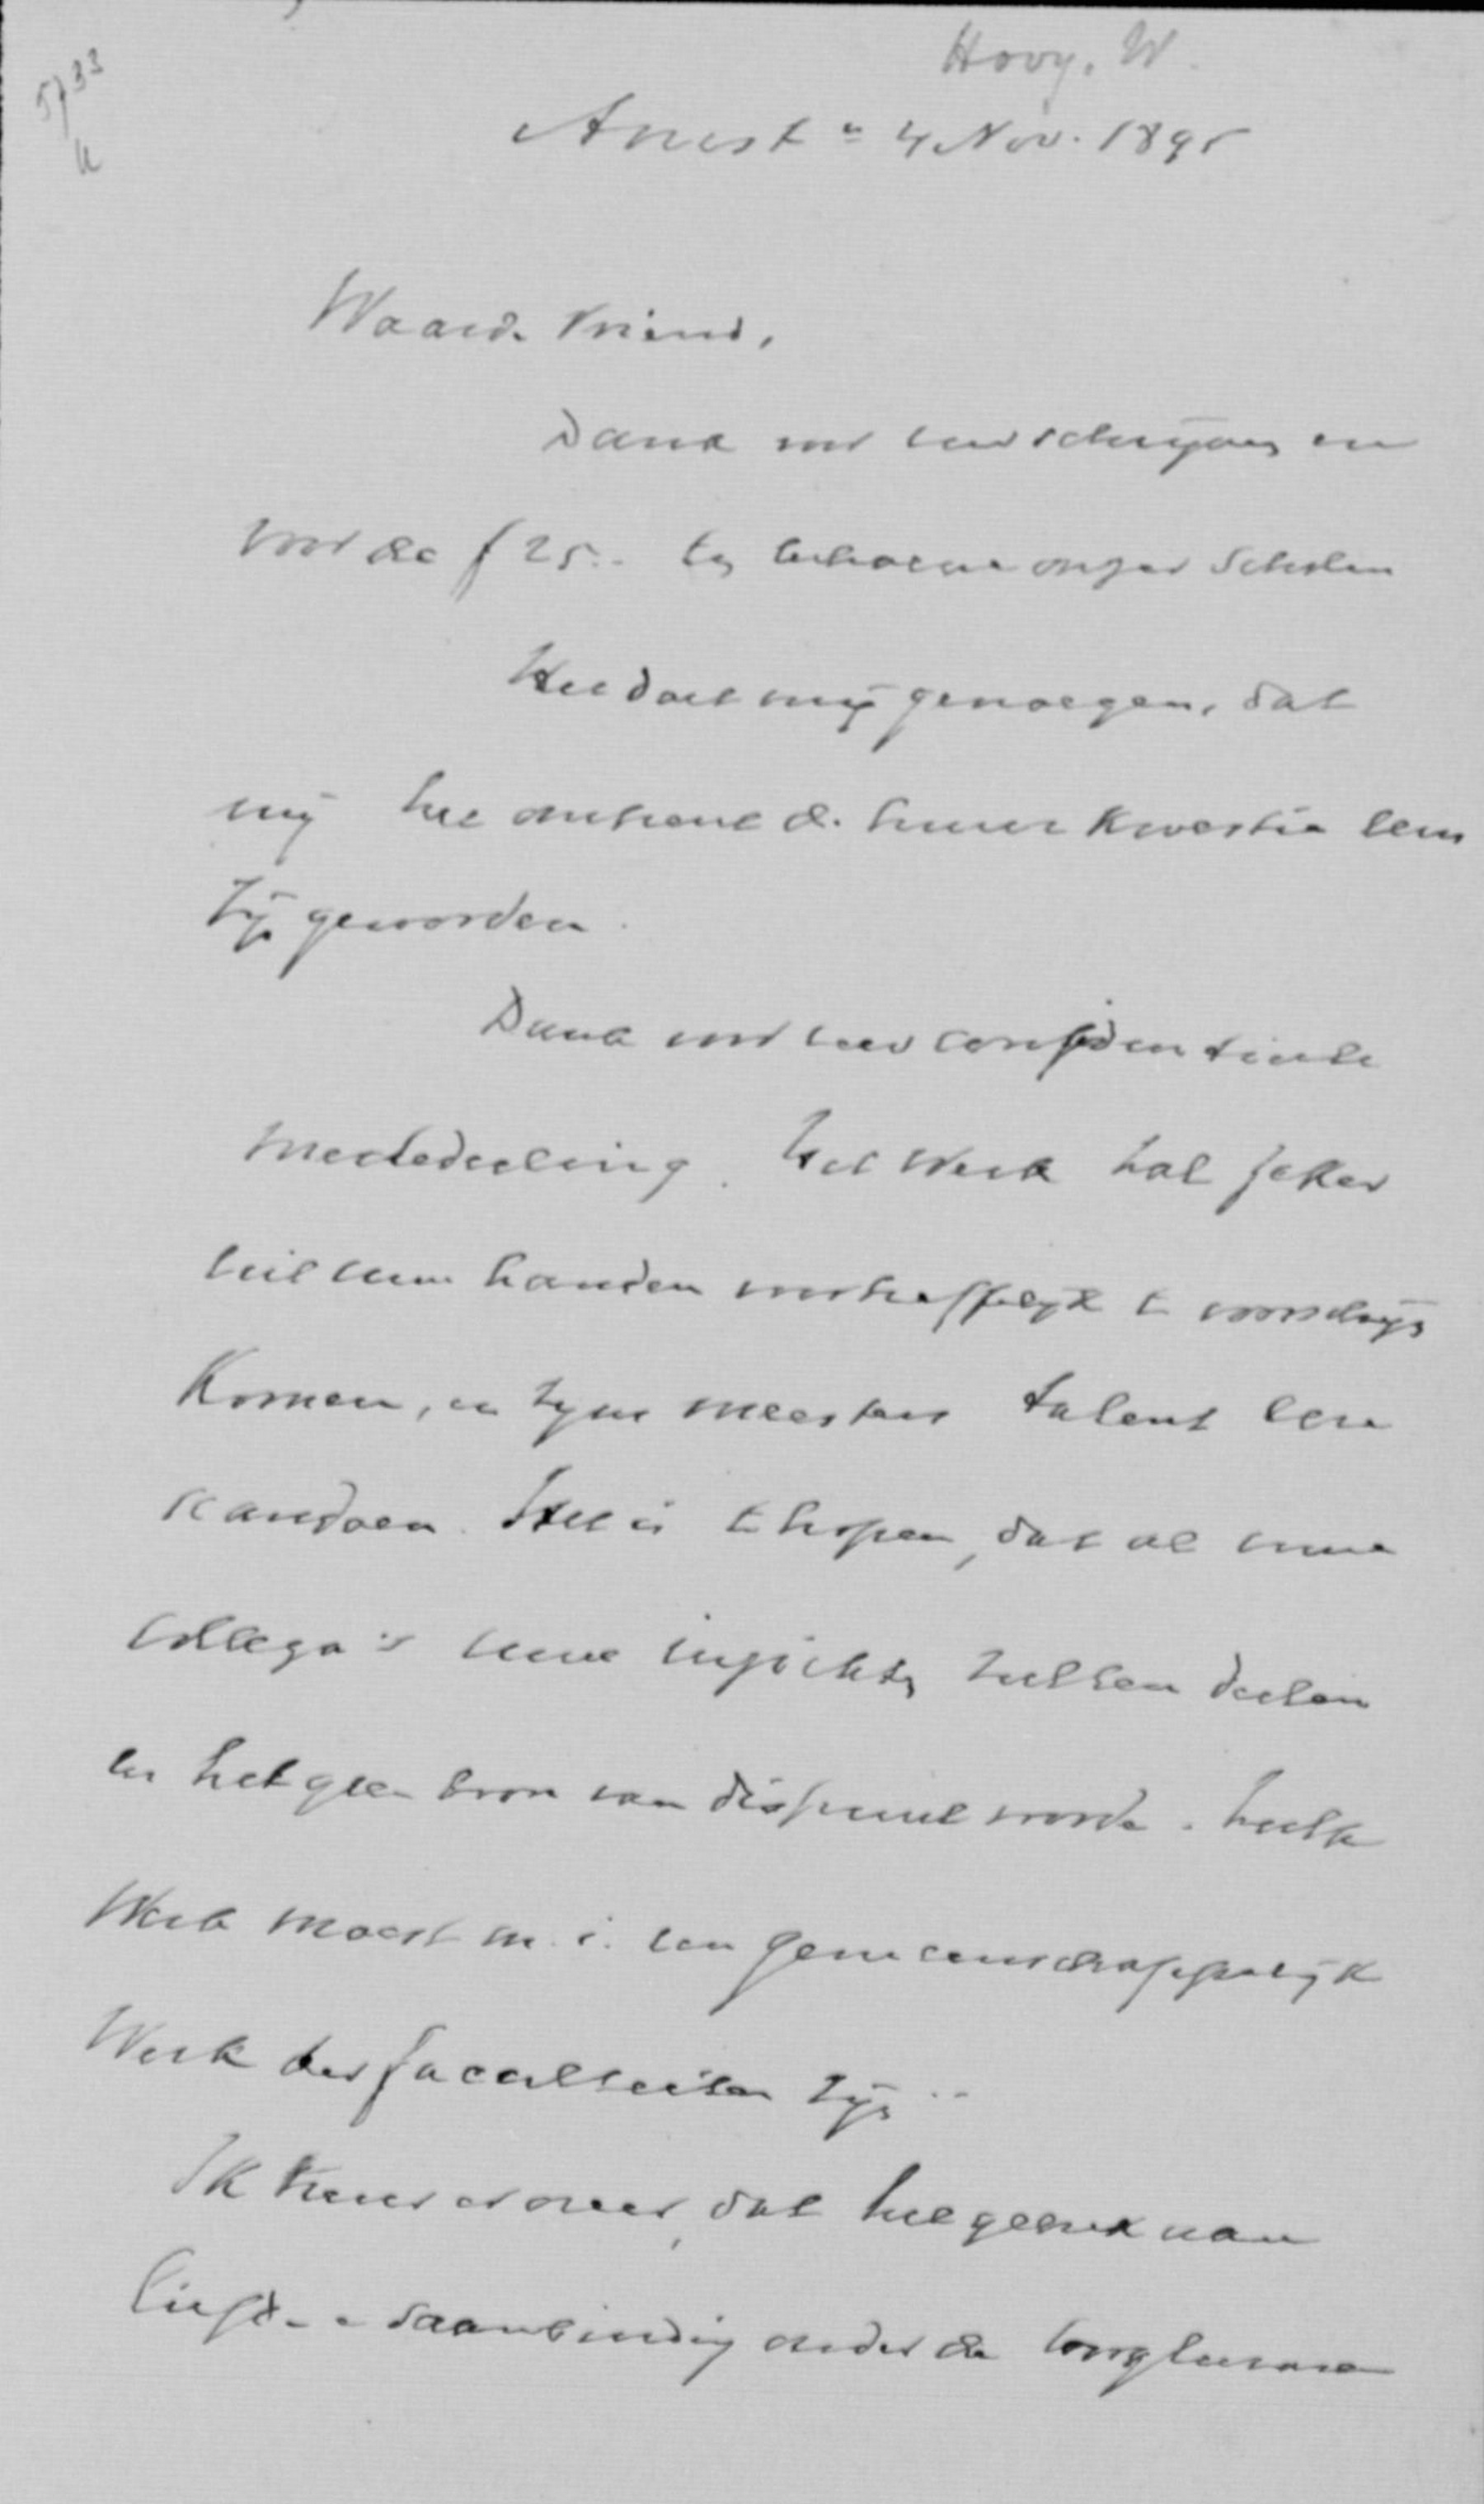 5733
Hovy, W.
Amst n 4 Nov. 1895
Waarde Vriend,
Dank voor uw schrijven en
voor de f 25.- ten behoeve onzer Scholen
Het doet mij genoegen, dat
mij het omtrent de kwestie
zijt geworden.
Dank voor uw confidentieele
mededeeling. Het werk zal zeker
uit uwe handen voortreffelijk te voorschijn
komen, en zijns meesters talent eere
aandoen. Het is te hopen, dat al uwe
collega's uwe inzichten zullen deelen
en het geen bron van dispuut worde. Zulk
Werk moest m.i. een gemeenschappelijk
Werk der faculteiten zijn ..
Ik treur erover, dat het gebrek aan
liefde- en samenbinding onder de hoogleeraren